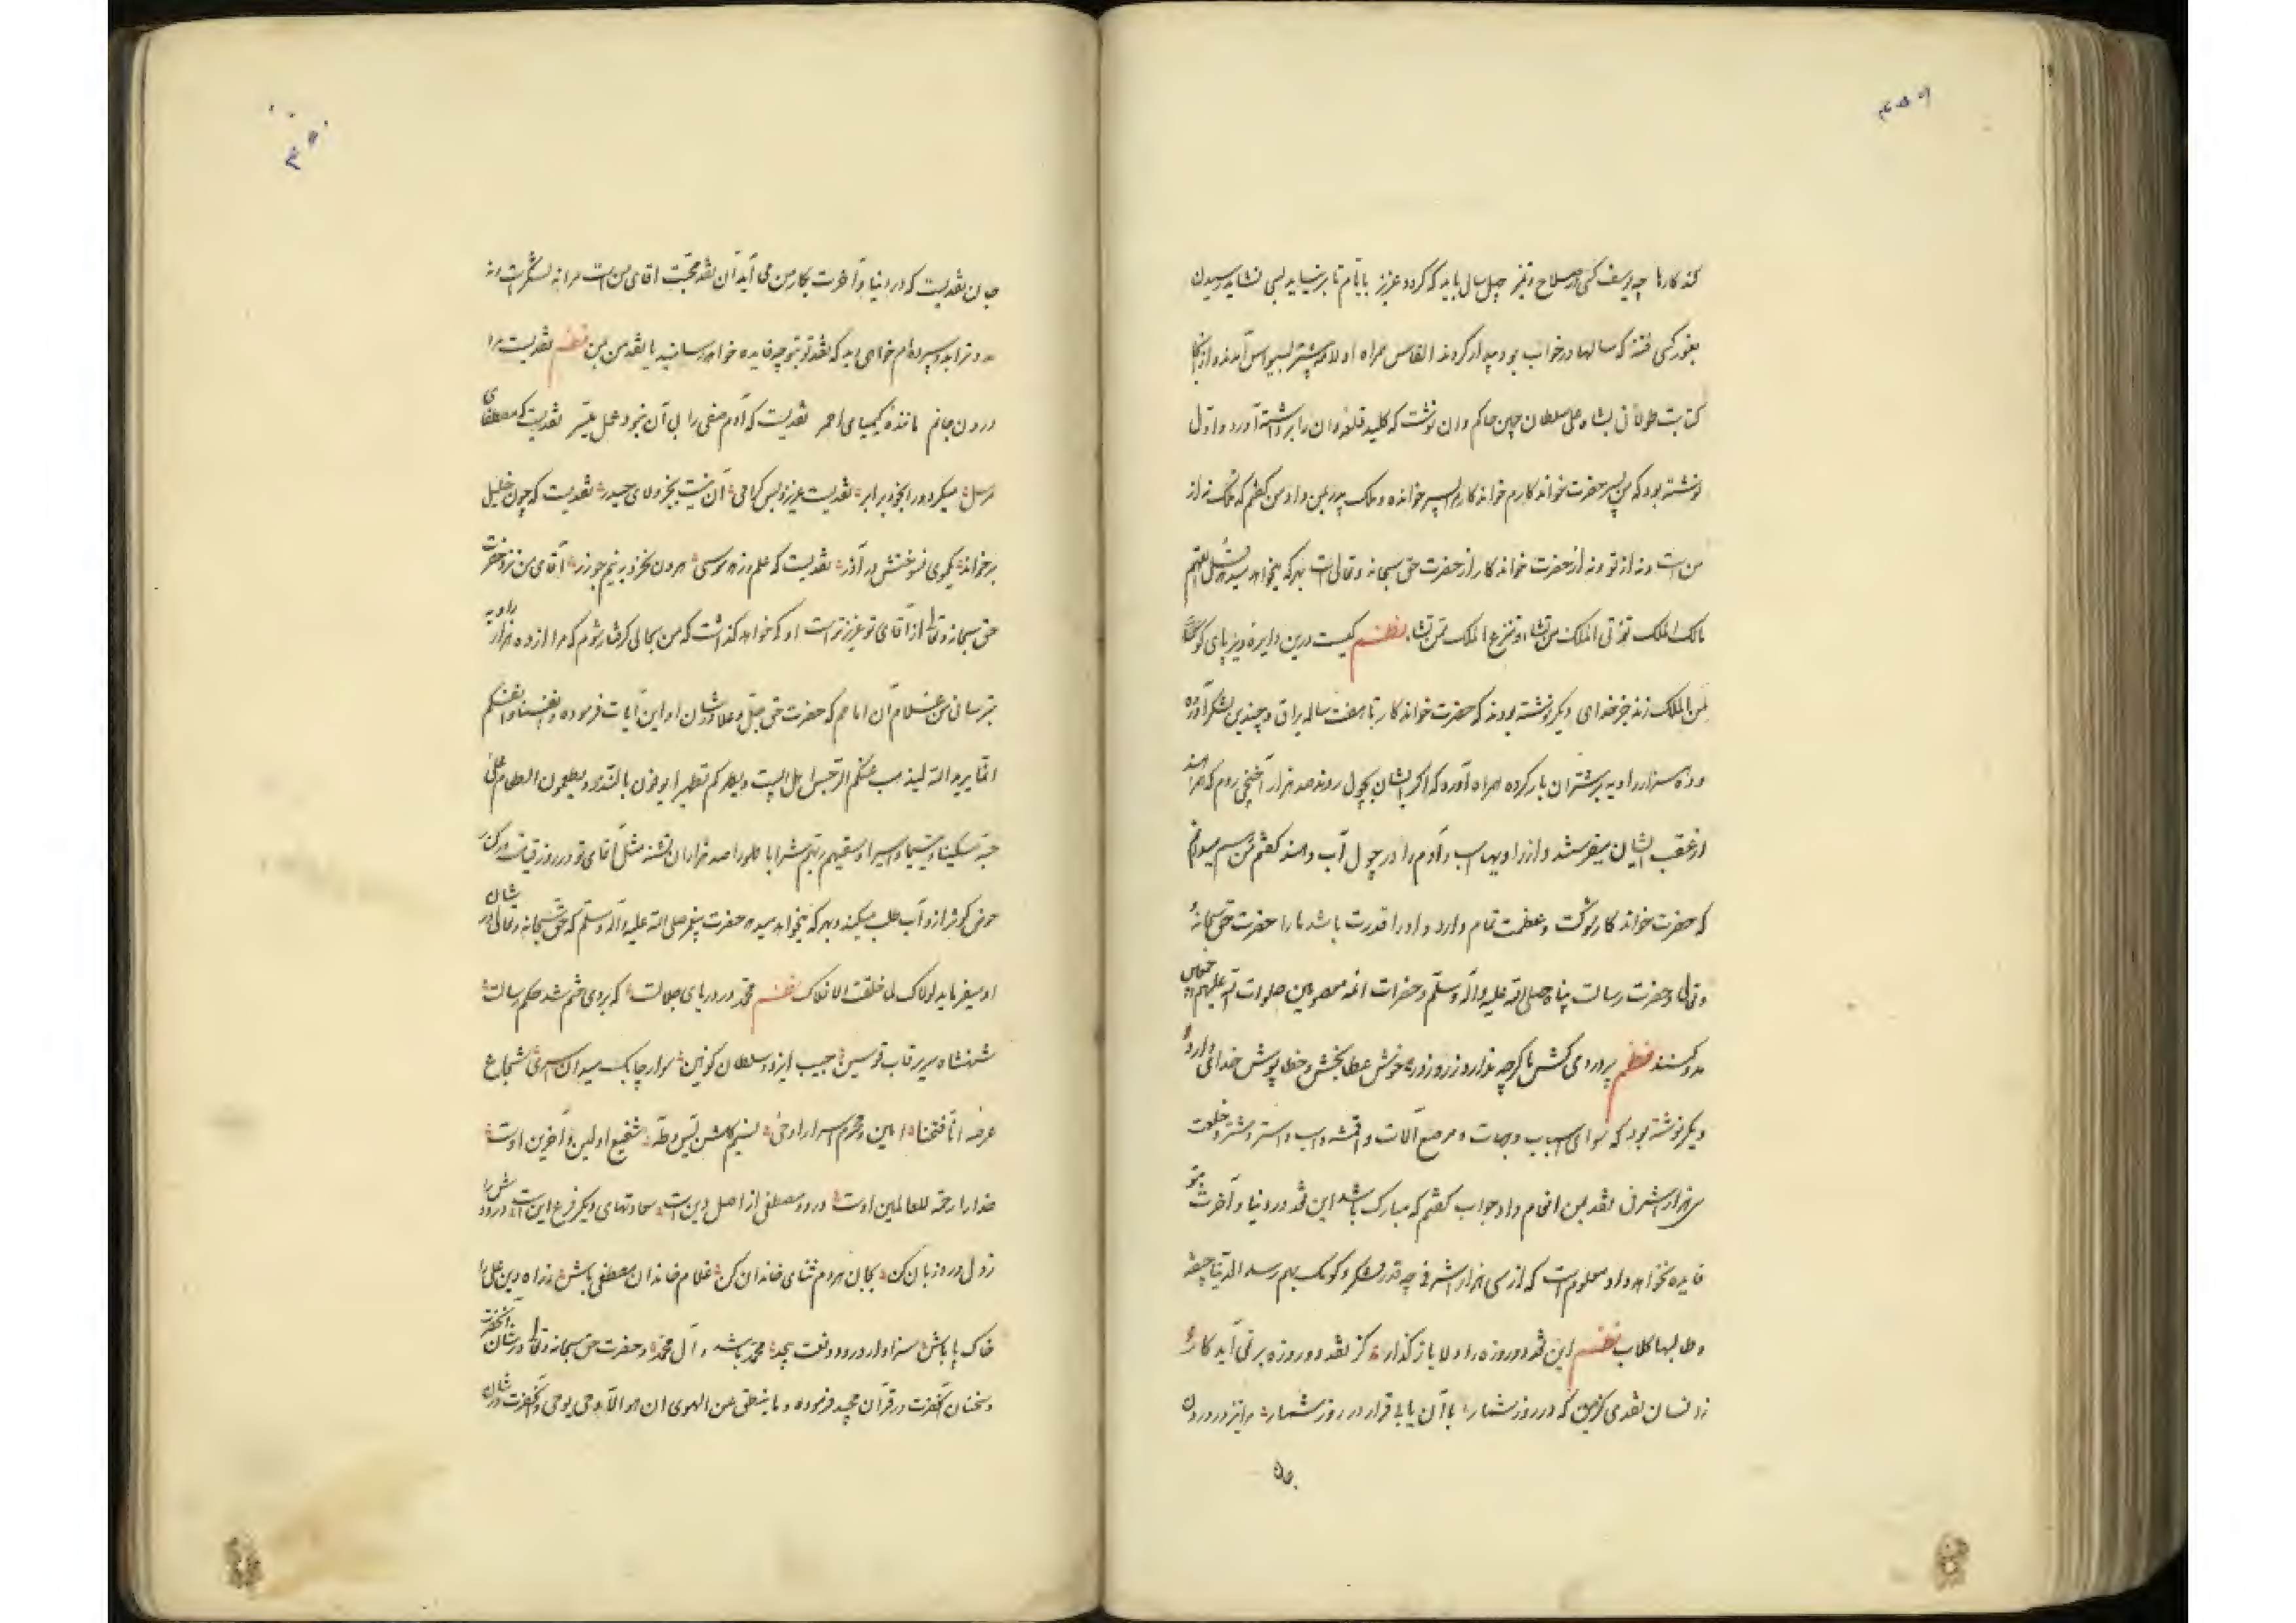 کند کارها چه یوسف کسی در صلاح و تمیز چهل سال باید که گردد عزیز بایام تا بر نیاید بسی نشاید رسیدن
بغور کسی فتنه که سالها در خواب بود بیدار کردند القاس همراه اولامه پیشتر بسیواس آمدند و از آنجا
کتابت طولانی بشاه علی سلطان چپنی حاکم وان نوشت که کلید قلعه وان را برداشته آورد و اول
نوشته بود که من پسر حضرت خواندکارم خواندکار مرا پسر خوانده و ملک پدر بمن داد من گفتم که ملک نه از
من است و نه از تو و نه از حضرت خواندکار از حضرت حق سبحانه و تعالی است بهر که میخواهد میدهد قل اللهم
مالک الملک تؤتی الملک من تشاء و تنزع الملک ممن تشاء نظم کیست درین دایره دیرپای کو
لمن الملک زند جز خدای دیگر نوشته بودند که حضرت خواندکار تا هفت ساله یراق و چندین لشکر آورده
و ده هزار راویه بر شتران بار کرده همراه آورده که اگر ایشان بچول روند صد هزار آخنجی روم که همراهند
از عقب ایشان میفرستد و از راویها اسب و آدم را در چول آب دهند گفتم من هم میدانم
که حضرت خواندکار شوکت و عظمت تمام دارد و او را قدرت باشد ما را حضرت حق سبحانه
و تعالی و حضرت رسالت پناه صلی الله علیه و آله و سلم و حضرات ائمه معصومین صلوات الله علیهم اجمعین
مدد کنند نظم بدردی کش ما گرچه ندارد زر و زور خوش عطابخش و خطاپوش خدائی دارد
دیگر نوشته بود که سوای اسباب و جهات و مرصع آلات و اقمشه و اسب و استر و شتر و خلعت
سی هزار اشرفی نقد بمن انعام داد جواب گفتم که مبارک باشد این نقد در دنیا و آخرت بتو
فایده نخواهد داد معلوم است که از سی هزار اشرفی چه قدر لشکر و کومک بهم رسد الدنیا جیفه
و طالبها کلاب نظم این نقد دو روزه را دلا باز گذار کز نقد دو روزه برنمی آید کار
زو نستان نقدی گزین که در روز شمار با آن یابی قرار در روز شمار مرا نیز در درون
جان نقدیست که در دنیا و آخرت بکار من می آید آن نقد محبت آقای من است مرا نه لشکر است و نه
مدد ترا بدو سپرده ام خواهی دید که نقد تو بتو چه فایده خواهد رسانید یا نقد من بمن نظم نقدیست مرا
درون جانم مانند کیمیای احمر نقدیست که آدم صفی را بی آن نبود عمل میسر نقدیست که مصطفای
مرسل میکرد ورا بخود برابر نقدیست عزیز و بس گرامی آن نیست بجز ولای حیدر نقدیست که چون خلیل
برخواند یکموی نسوختش در آذر نقدیست که علم نزد موسی بدون نخرد به نیم جو زر آقای من نزد حضرت
حق سبحانه و تعالی از آقای تو عزیزتر است او که خواهد گذاشت که من بحالی گرفتار شوم که مرا از ده هزار راویه
بترسانی من غلام آن امامم که حضرت حق جل و علا در شان او این آیات فرموده و انفسنا و انفسکم
انما یرید الله لیذهب عنکم الرجس اهل البیت و یطهرکم تطهیرا یوفون بالنذر و یطعمون الطعام علی
حبه مسکینا و یتیما و اسیرا و سقیهم ربهم شرابا طهورا صد هزاران تشنه مثل آقای تو در روز قیامت در کنار
حوض کوثر ازو آب طلب میکنند و بهر که میخواهد میدهد حضرت پیغمبر صلی الله علیه و آله و سلم که حق سبحانه و تعالی در شان
او میفرماید لولاک لما خلقت الافلاک نظم محمد در دریای جلالت که بر وی ختم شد حکم رسالت
شهنشاه سریر قاب قوسین حبیب ایزد و سلطان کونین سوار چابک میدان اسری شجاع
عرصه انا فتحنا امین و محرم اسرار اوحی نسیم گلشن یس و طه شفیع اولین و آخرین اوست
خدا را رحمة للعالمین اوست درود مصطفی از اصل دین است سعادتهای دیگر فرع این است درودش را
ز دل ورد زبان کن بجان هر دم ثنای خاندان کن غلام خاندان مصطفی باش براه دین علی را
خاک پا باش سزاوار درود و نعت بیحد محمد باشد و آل محمد و حضرت حق سبحانه و تعالی در شان آنحضرت
و سخنان آنحضرت در قرآن مجید فرموده و ما ینطق عن الهوی ان هو الا وحی یوحی و آنحضرت در شان